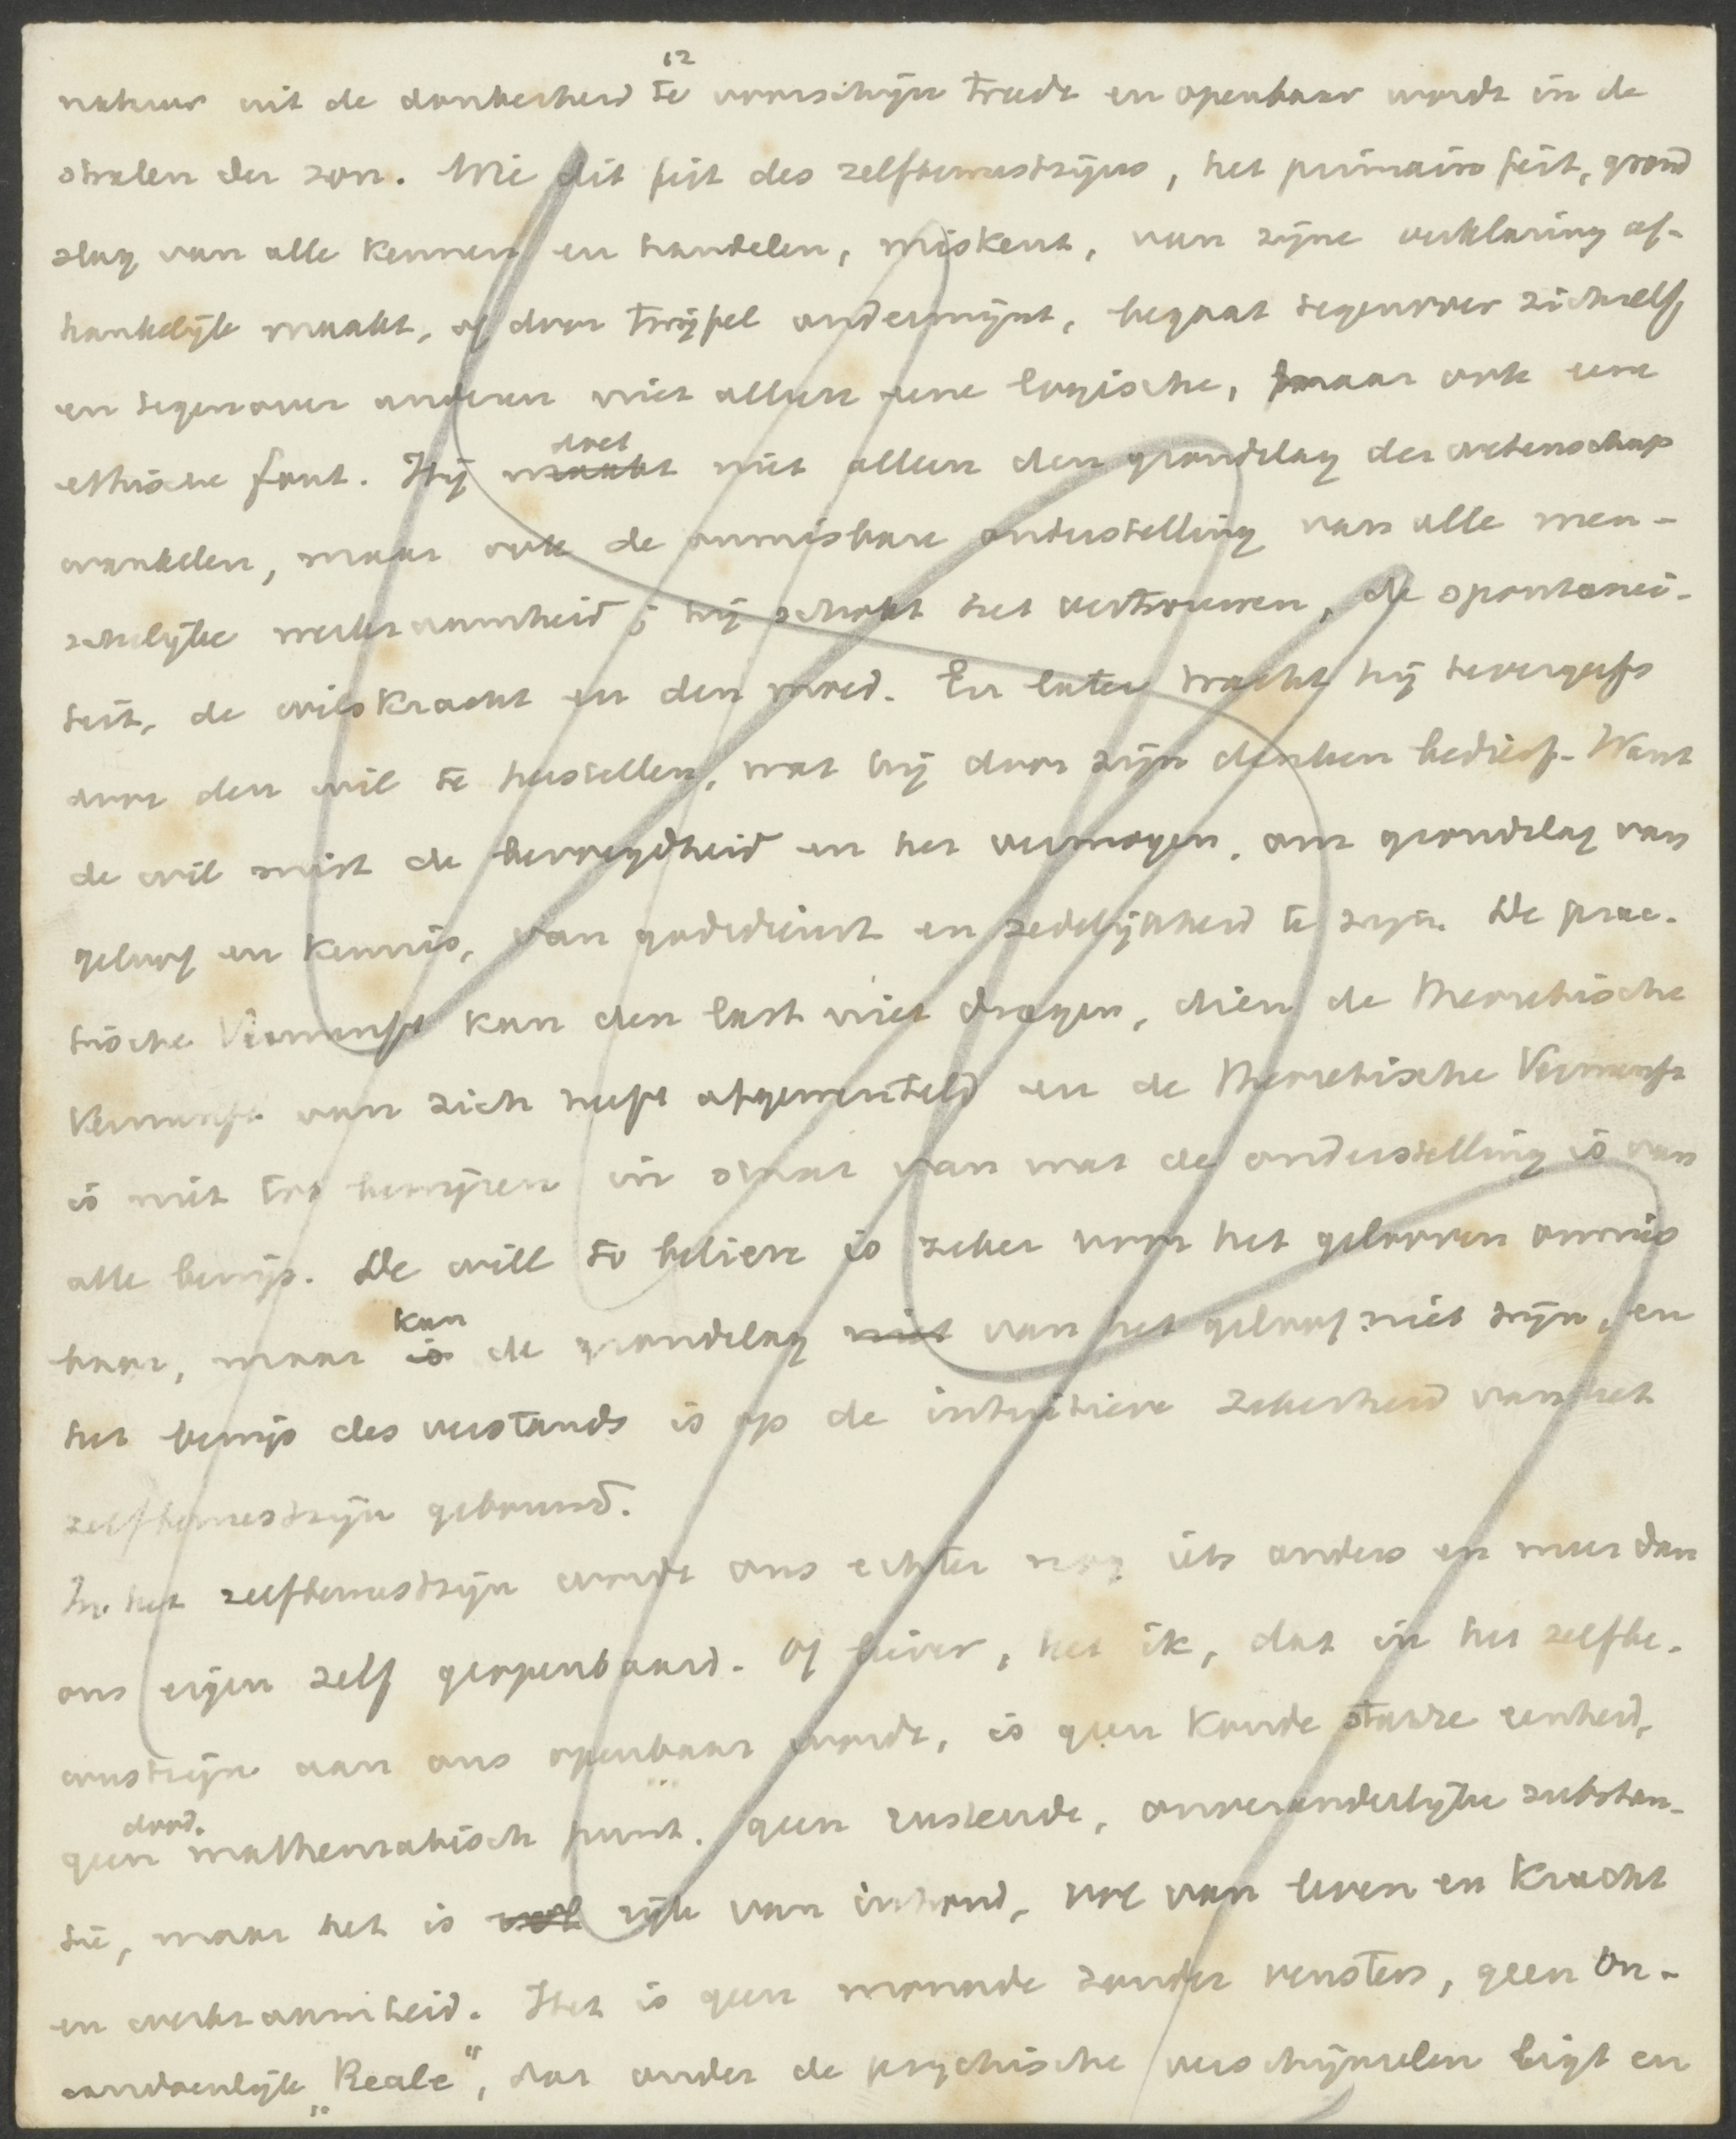 12
natuur uit de donkerheid te voorschijn treedt en openbaar wordt in de
stralen der zon. Wie dit feit des zelfbewustzijns, het primaire feit, grond
slag van alle kennen en handelen, miskent, van zijne verklaring af-
hankelijk maakt, of door twijfel ondermijnt, begaat tegenover zichzelf
en tegenover anderen niet alleen eene logische, maar ook eene
ethische fout. Hij maakt doet niet alleen den grondslag der wetenschap
wankelen, maar ook de onmisbare onderstelling van alle men-
schelijke werkzaamheid; hij schokt het vertrouwen, de spontanei-
teit, de wilskracht en den moed. En later tracht hij tevergeefs
door den wil te herstellen, wat hij door zijn denken bedierf. Want
de wil mist de bevoegdheid en het vermogen, om grondslag van
geloof en kennis, van godsdienst en zedelijkheid te zijn. De prac-
tische Vernunft kan den last niet dragen, dien de theoretische
Vernunft van zich heeft afgewenteld en de theoretische Vernunft
is niet tot bewijzen in staat van wat de onderstelling is van
alle bewijs. De will to believe is zeker voor het gelooven onmis
baar, maar is kan de grondslag niet van het geloof niet zijn, en
het bewijs des verstands is op de intuitieve zekerheid van het
zelfbewustzijn gebouwd.
In het zelfbewustzijn wordt ons echter nog iets anders en meer dan
ons eigen zelf geopenbaard. Of liever, het ik, dat in het zelfbe-
wustzijn aan ons openbaar wordt, is geen koude starre eenheid,
geen dood. mathematisch punt. geen rustende, onveranderlijke substan-
tie, maar het is vol rijk van inhoud, vol van leven en kracht
en werkzaamheid. Het is geen monade zonder vensters, geen on-
aandoenlijk „Reale", dat onder de psychische verschijnselen ligt en